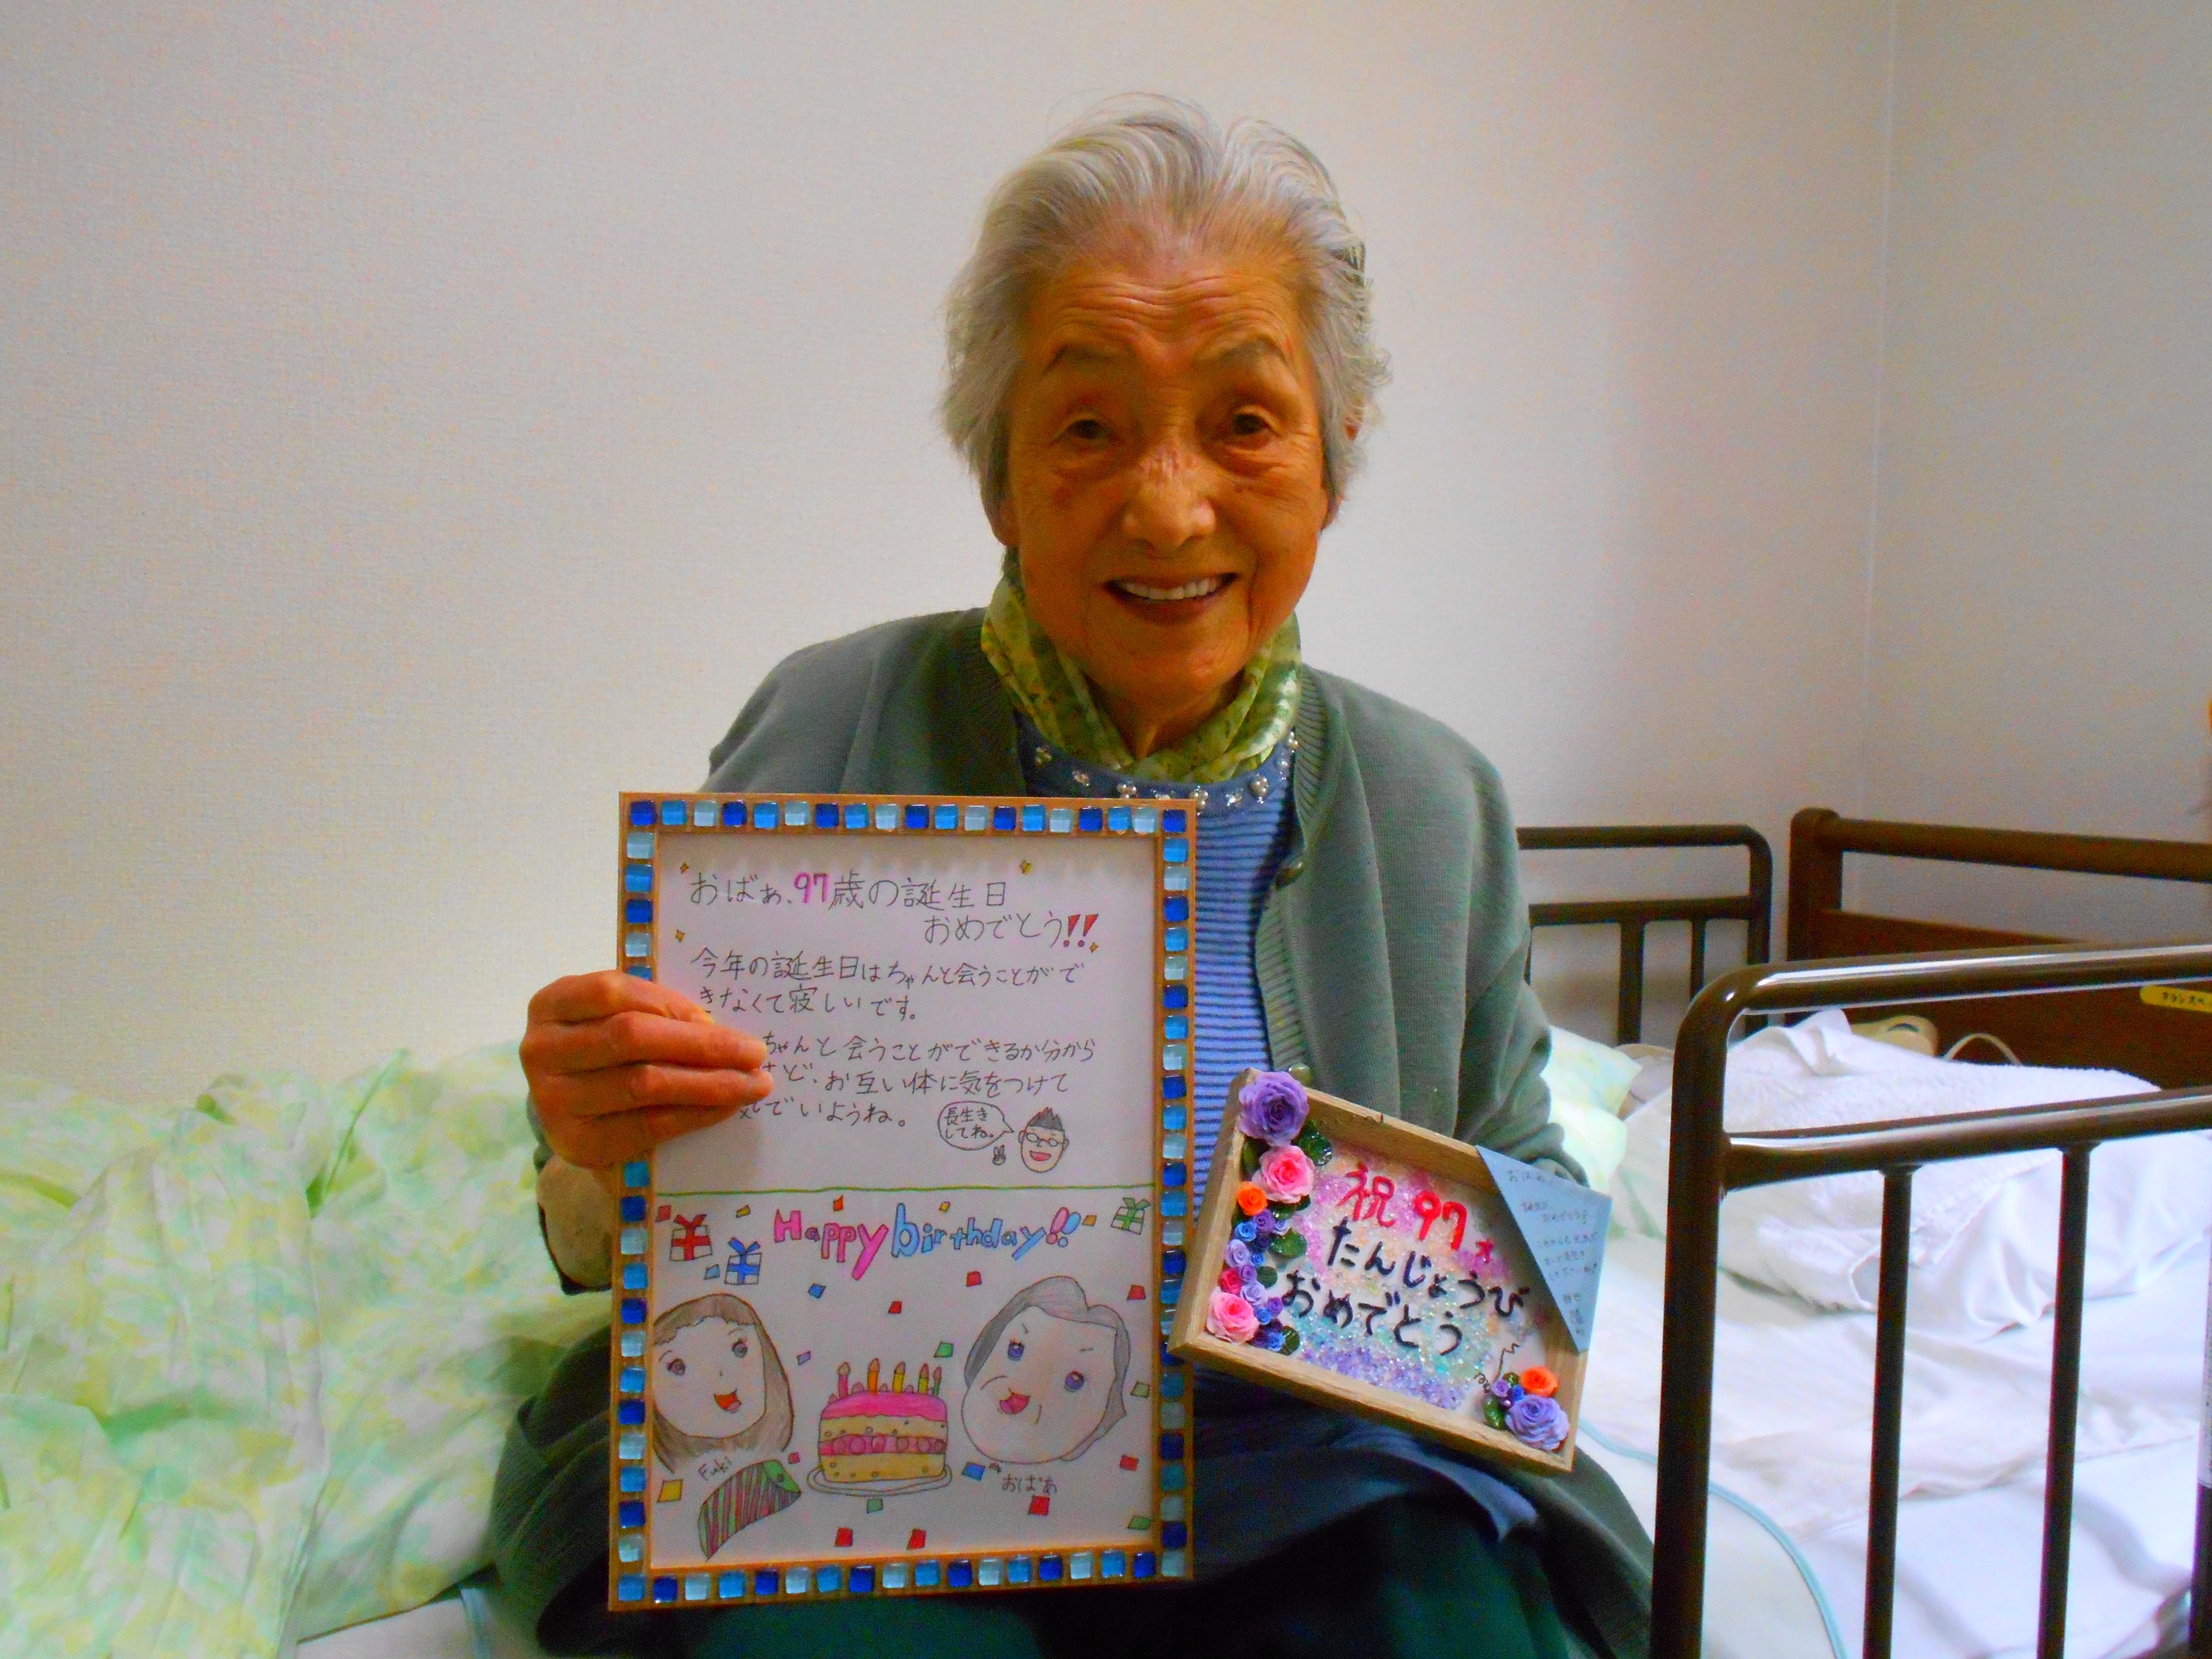 おばぁ、97歳の誕生日
おめでとう!!
今年の誕生日はちゃんと会うことがで
きなくて寂しいです。
ちゃんと会うことができるか分から
けど、お互い体に気をつけて
気でいようね。
長生き
してね。
Happy birthday!!
Fuki
おばあ
祝97才
たんじょうび
おめでとう
おめでとう!